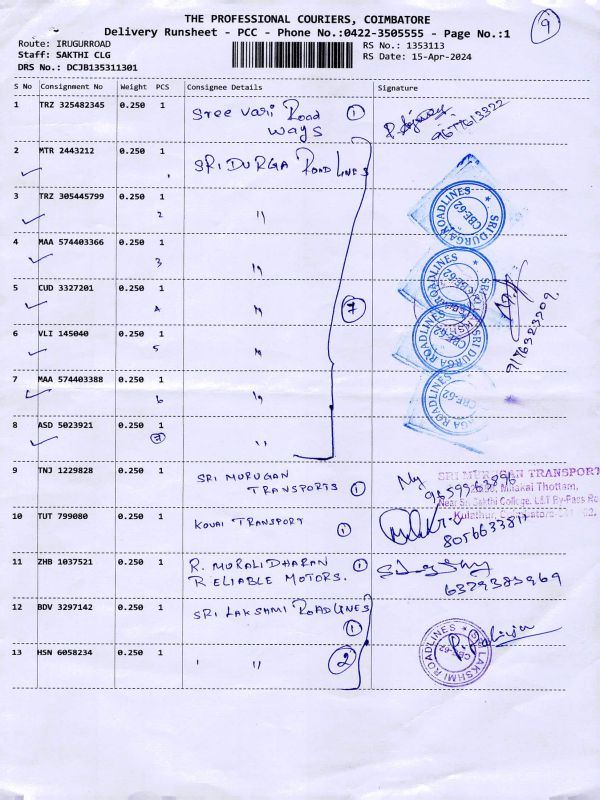 THE PROFESSIONAL COURIERS, COIMBATORE
Delivery Runsheet - PCC - Phone No.:0422-3505555 - Page No.:1
9
Route: IRUGURROAD
RS No.: 1353113
Staff: SAKTHI CLG
RS Date: 15-Apr-2024
DRS No.: DCJB135311301
S No Consignment No Weight PCS Consignee Details Signature
1 TRZ 325482345 0.250 1 Sree Vari Road 1
ways
2 MTR 2443212 0.250 1 SRI DURGA ROAD LINES
1
3 TRZ 305445799 0.250 1
2 "
SRI DURGA ROADLINES
CBE-62
4 MAA 574403366 0.250 1
3 "
SRI DURGA ROADLINES
CBE-62
5 CUD 3327201 0.250 1 7
4 "
6 VLI 145040 0.250 1
5 "
SRI DURGA ROADLINES
CBE-62
7 MAA 574403388 0.250 1
6 "
SRI DURGA ROADLINES
CBE-62
8 ASD 5023921 0.250 1
7 "
9 TNJ 1229828 0.250 1 SRI MURUGAN
TRANSPORTS 1
SRI MURUGAN TRANSPORT
Milakai Thottam,
Near Sri Sakthi College, L&T By-Pass Ro
10 TUT 799080 0.250 1 KOVAI TRANSPORT 1
11 ZHB 1037521 0.250 1 R. MURALIDHARAN 1
RELIABLE MOTORS.
6379383969
12 BDV 3297142 0.250 1 SRI LAKSHMI ROADLINES
1
SRI LAKSHMI ROADLINES
CBE-62
13 HSN 6058234 0.250 1 " 2